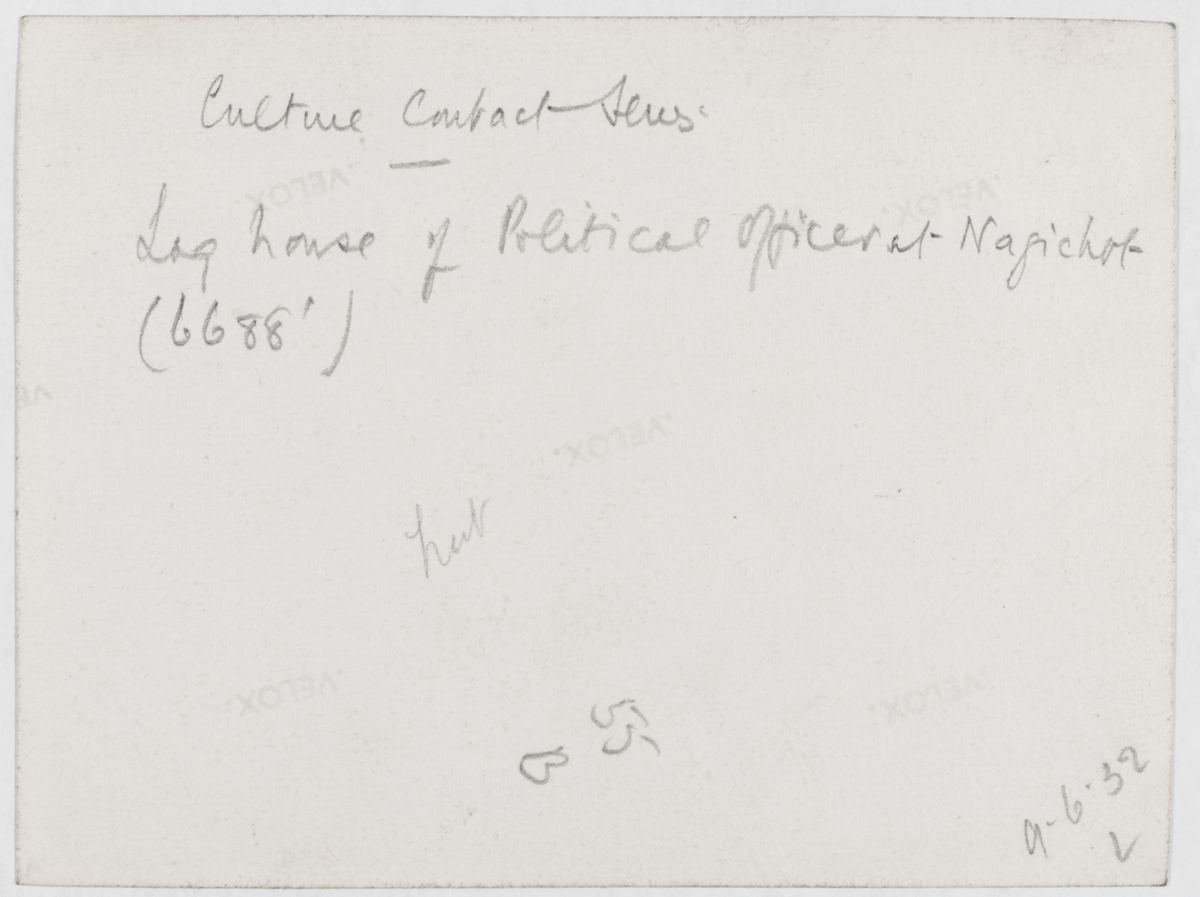 Culture Contact
Log house of Political Officer at Nagichot
(6688')
'VELOX'
'VELOX'
'VELOX'
hut
'VELOX'
'VELOX'
B 55
9-6-32